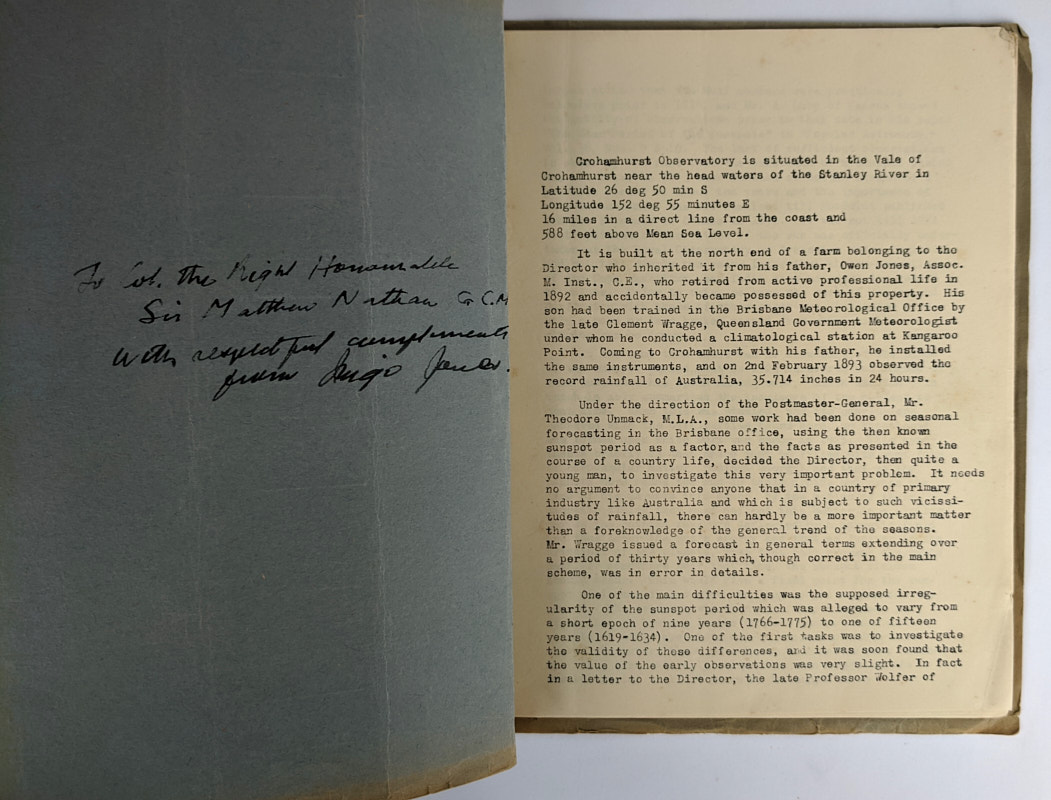 To Col. the Right Honourable
Sir Matthew Nathan G.C.M
With respectful compliments
from Inigo Jones.
Crohamhurst Observatory is situated in the Vale of
Crohamhurst near the head waters of the Stanley River in
Latitude 26 deg 50 min S
Longitude 152 deg 55 minutes E
16 miles in a direct line from the coast and
588 feet above Mean Sea Level.
It is built at the north end of a farm belonging to the
Director who inherited it from his father, Owen Jones, Assoc.
M. Inst., C.E., who retired from active professional life in
1892 and accidentally became possessed of this property. His
son had been trained in the Brisbane Meteorological Office by
the late Clement Wragge, Queensland Government Meteorologist
under whom he conducted a climatological station at Kangaroo
Point. Coming to Crohamhurst with his father, he installed
the same instruments, and on 2nd February 1893 observed the
record rainfall of Australia, 35.714 inches in 24 hours.
Under the direction of the Postmaster-General, Mr.
Theodore Unmack, M.L.A., some work had been done on seasonal
forecasting in the Brisbane office, using the then known
sunspot period as a factor, and the facts as presented in the
course of a country life, decided the Director, then quite a
young man, to investigate this very important problem. It needs
no argument to convince anyone that in a country of primary
industry like Australia and which is subject to such vicissi-
tudes of rainfall, there can hardly be a more important matter
than a foreknowledge of the general trend of the seasons.
Mr. Wragge issued a forecast in general terms extending over
a period of thirty years which, though correct in the main
scheme, was in error in details.
One of the main difficulties was the supposed irreg-
ularity of the sunspot period which was alleged to vary from
a short epoch of nine years (1766-1775) to one of fifteen
years (1619-1634). One of the first tasks was to investigate
the validity of these differences, and it was soon found that
the value of the early observations was very slight. In fact
in a letter to the Director, the late Professor Wolfer of